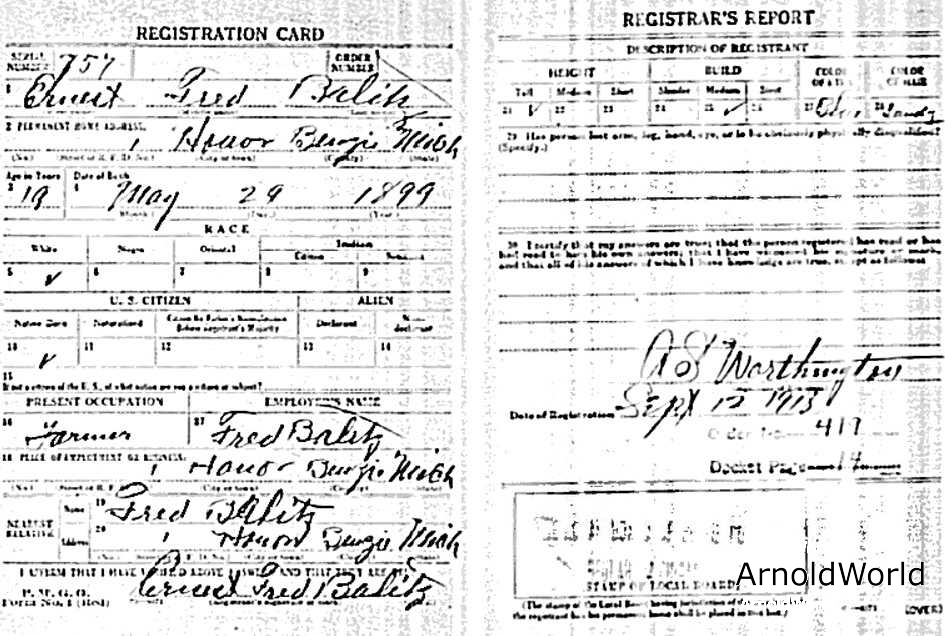 REGISTRATION CARD
SERIAL NUMBER 757 ORDER NUMBER
1 Ernest Fred Balitz
2 PERMANENT HOME ADDRESS:
Honor Benzie Mich
(No.) (Street or R. F. D. No.) (City or town) (County) (State)
Age in Years Date of Birth
3 19 4 May 29 1899
(Month.) (Day.) (Year.)
RACE
White Negro Oriental Indian
Citizen
5 ✓ 6 7 8 9
U. S. CITIZEN ALIEN
Native Born Naturalized Declarant
10 ✓ 11 12 13 14
15
If not a citizen of the U. S., of what nation are you a citizen or subject?
PRESENT OCCUPATION EMPLOYER'S NAME
16 Farmer 17 Fred Balitz
18 PLACE OF EMPLOYMENT OR BUSINESS:
Honor Benzie Mich
(No.) (City or town) (County) (State)
NEAREST RELATIVE Name 19 Fred Balitz
Address 20 Honor Benzie Mich
I AFFIRM THAT I HAVE VERIFIED ABOVE ANSWERS AND THAT THEY ARE TRUE
P. M. G. O.
Form No. 1 (Red) Ernest Fred Balitz
REGISTRAR'S REPORT
DESCRIPTION OF REGISTRANT
HEIGHT BUILD COLOR OF EYES COLOR OF HAIR
Tall Medium Short Slender Medium Stout
21 ✓ 22 23 24 25 ✓ 26 27 Blue 28 Sandy
29 Has person lost arm, leg, hand, eye, or is he obviously physically disqualified?
(Specify.)
30 I certify that my answers are true; that the person registered has read or has
had read to him his own answers; that I have witnessed his signature or mark,
and that all of his answers of which I have knowledge are true, except as follows:
A S Worthington
Date of Registration Sept 12 1918
Order No. 417
Docket Page 14
STAMP OF LOCAL BOARD
ArnoldWorld
(The stamp of the Local Board having jurisdiction of the
the registrant has his permanent home shall be placed in this box.)
(OVER)